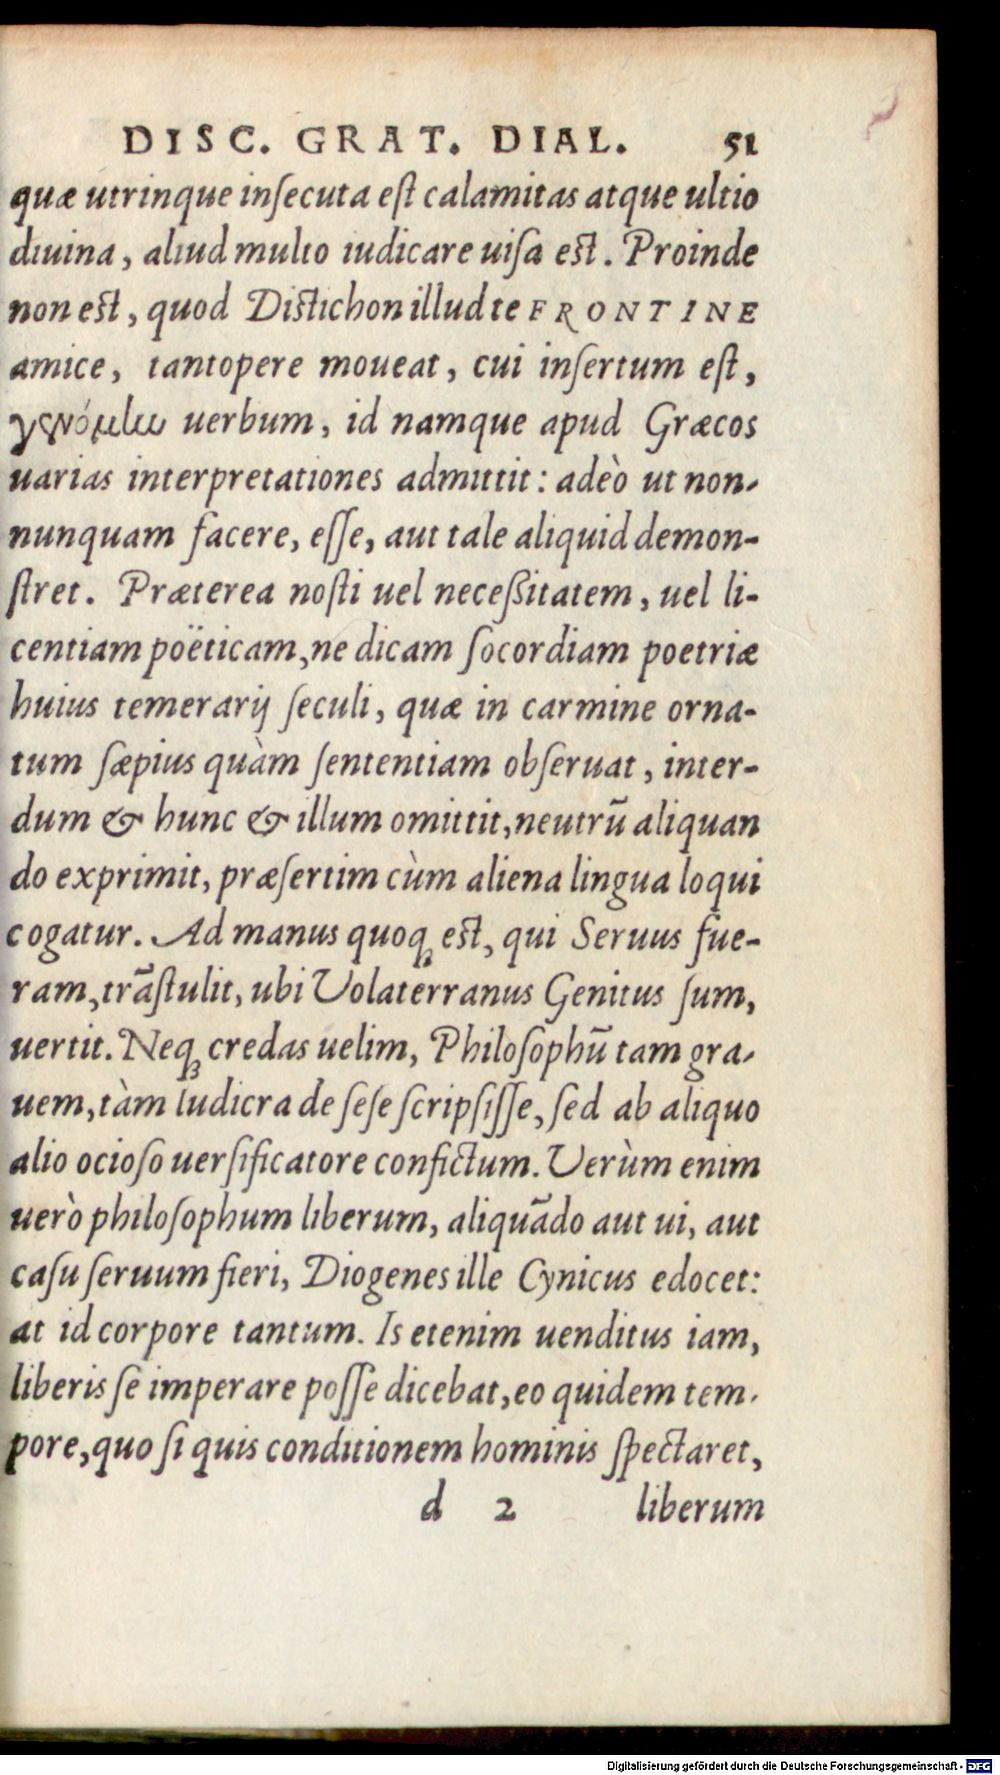 DISC. GRAT. DIAL. 51
quæ utrinque inſecuta eſt calamitas atque ultio
diuina, aliud multo iudicare uiſa eſt. Proinde
non eſt, quod Diſtichon illud te FRONTINE
amice, tantopere moueat, cui inſertum eſt,
γενόμην uerbum, id namque apud Græcos
uarias interpretationes admittit: adeò ut non-
nunquam facere, eſſe, aut tale aliquid demon-
ſtret. Præterea noſti uel neceßitatem, uel li-
centiam poëticam, ne dicam ſocordiam poetriæ
huius temerarij ſeculi, quæ in carmine orna-
tum ſæpius quàm ſententiam obſeruat, inter-
dum & hunc & illum omittit, neutrū aliquan
do exprimit, præſertim cùm aliena lingua loqui
cogatur. Ad manus quoqꝫ eſt, qui Seruus fue-
ram, trāſtulit, ubi Volaterranus Genitus ſum,
uertit. Neqꝫ credas uelim, Philoſophū tam gra-
uem, tàm ludicra de ſeſe ſcripſiſſe, ſed ab aliquo
alio ocioſo uerſificatore confictum. Verùm enim
uerò philoſophum liberum, aliquādo aut ui, aut
caſu ſeruum fieri, Diogenes ille Cynicus edocet:
at id corpore tantum. Is etenim uenditus iam,
liberis ſe imperare poſſe dicebat, eo quidem tem-
pore, quo ſi quis conditionem hominis ſpectaret,
d 2 liberum
Digitalisierung gefördert durch die Deutsche Forschungsgemeinschaft - DFG